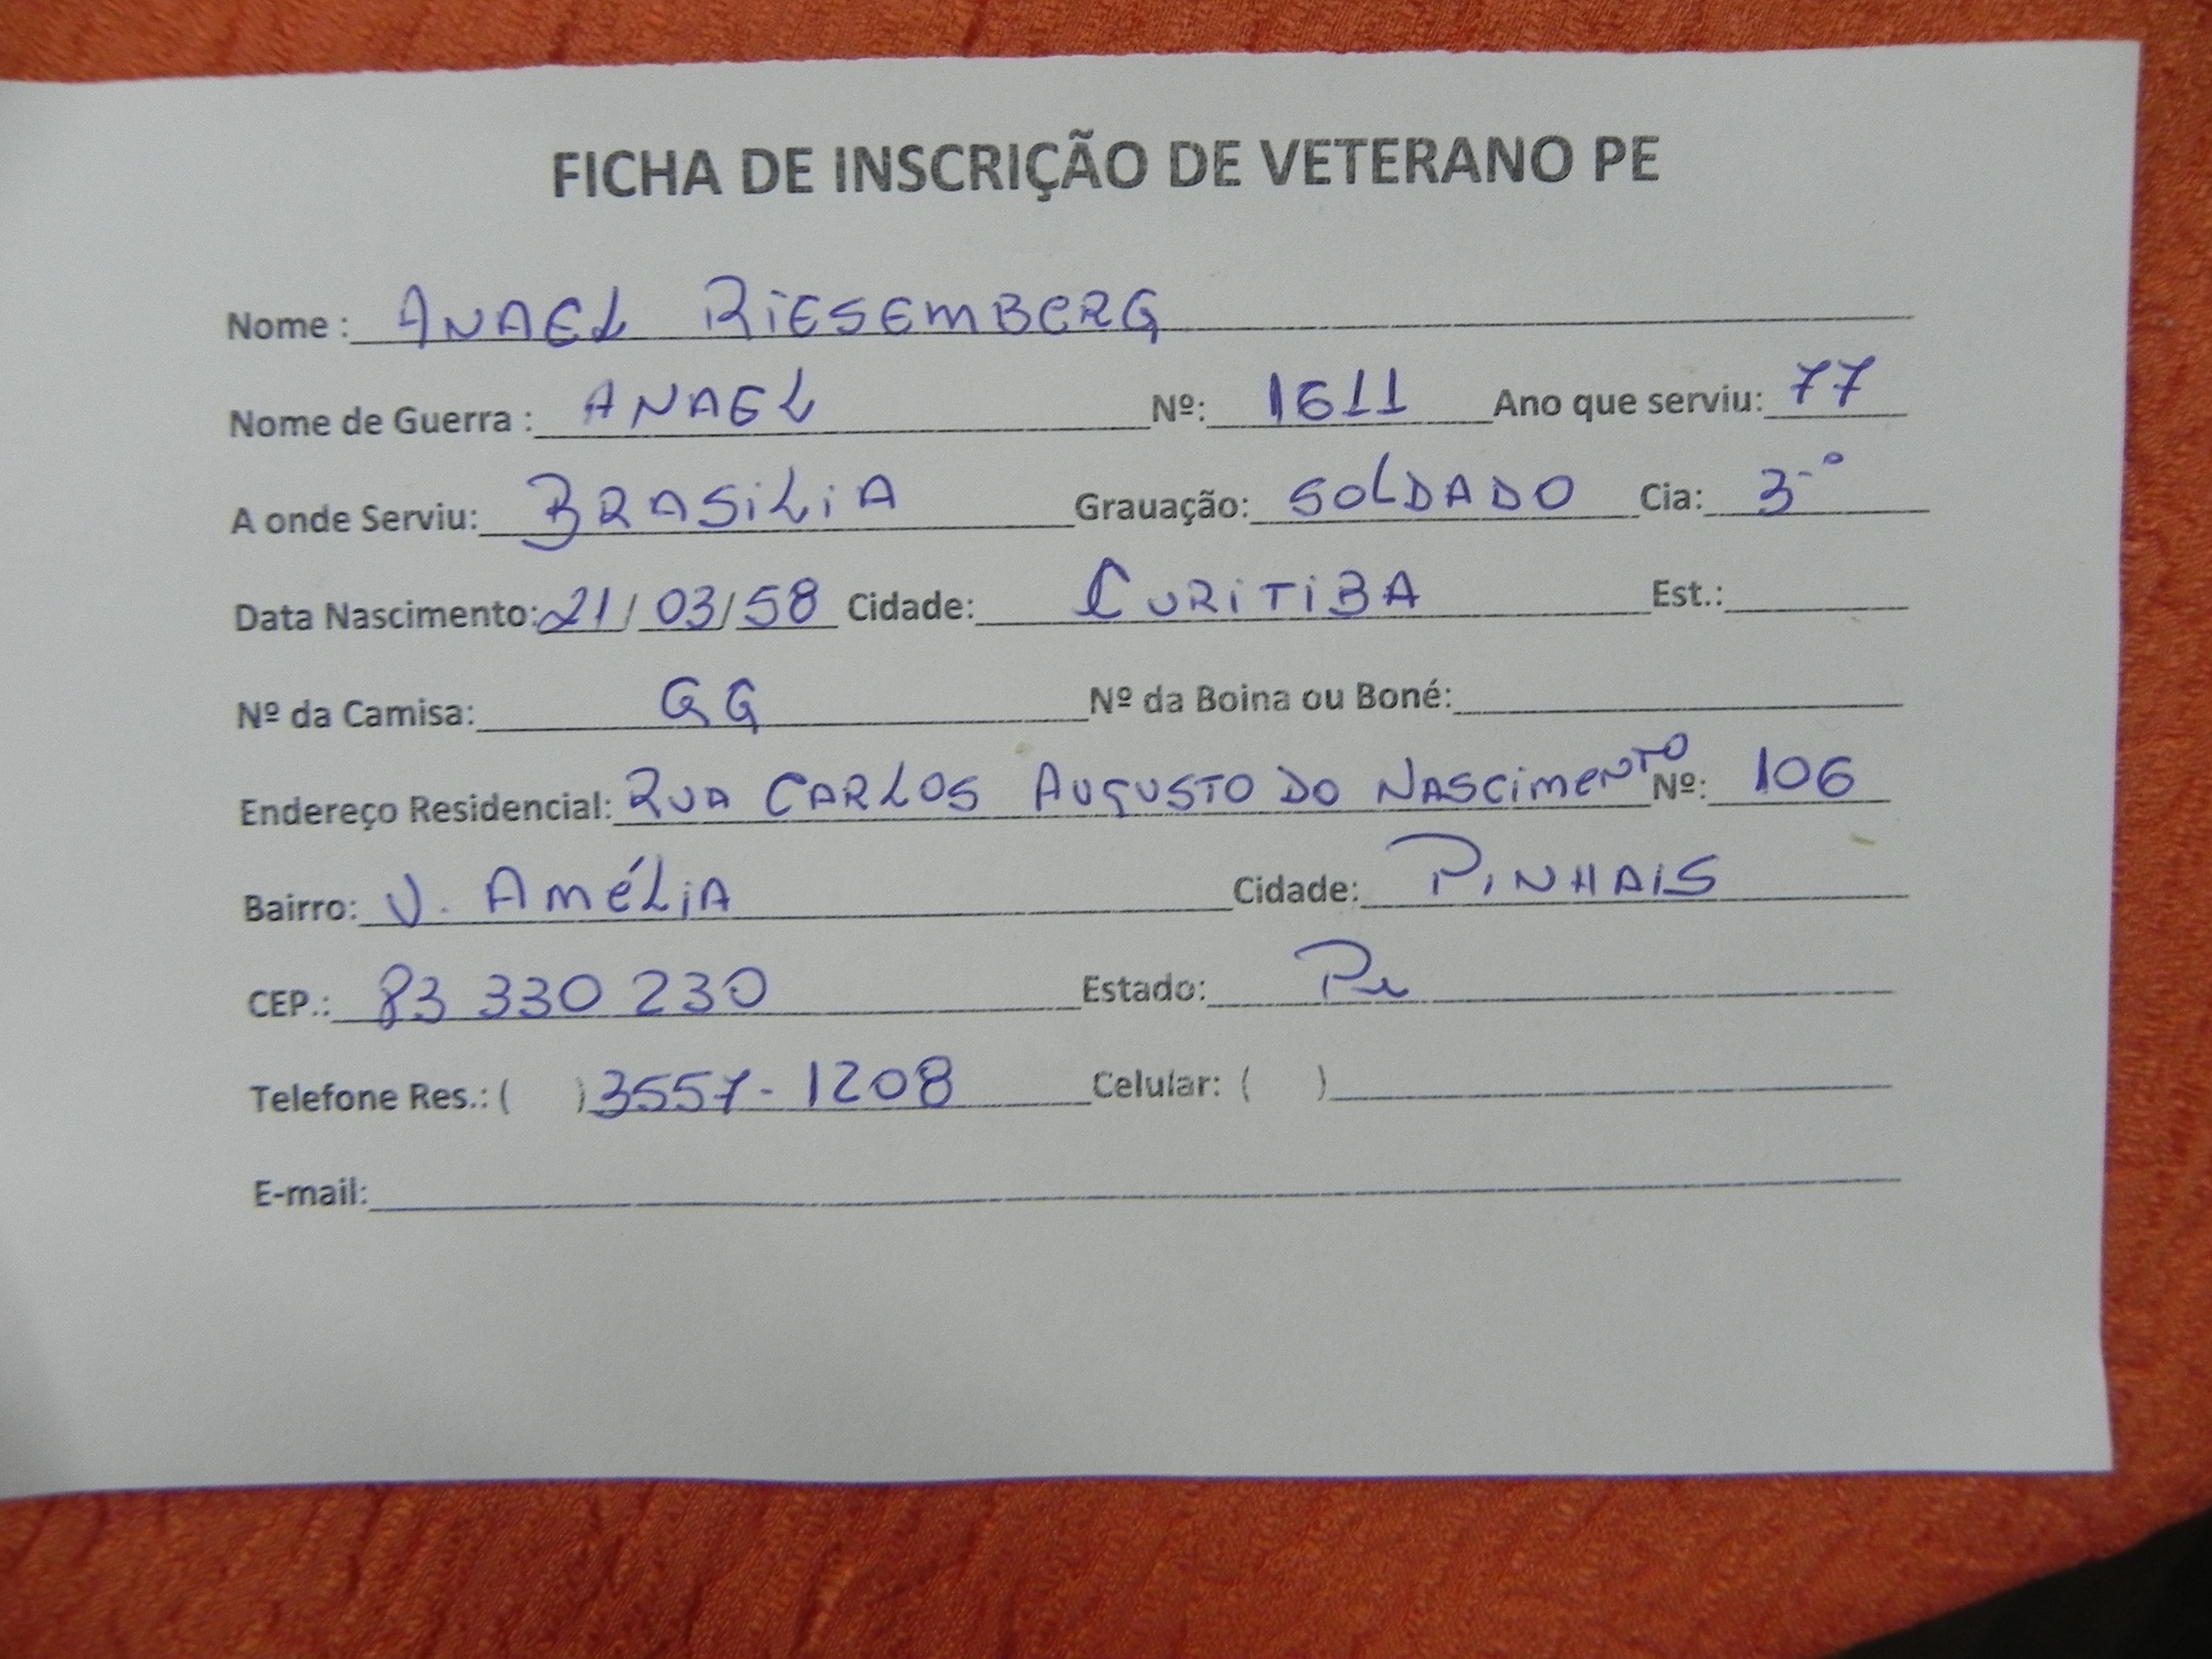 FICHA DE INSCRIÇÃO DE VETERANO PE
Nome : ANAEL RIESEMBERG
Nome de Guerra : ANAEL Nº: 1611 Ano que serviu: 77
A onde Serviu: BRASILIA Grauação: SOLDADO Cia: 3º
Data Nascimento: 21/03/58 Cidade: CURITIBA Est.:
Nº da Camisa: GG Nº da Boina ou Boné:
Endereço Residencial: RUA CARLOS AUGUSTO DO NASCIMENTO Nº: 106
Bairro: V. AMÉLIA Cidade: PINHAIS
CEP.: 83 330 230 Estado: Pr
Telefone Res.: ( ) 3557-1208 Celular: ( )
E-mail: